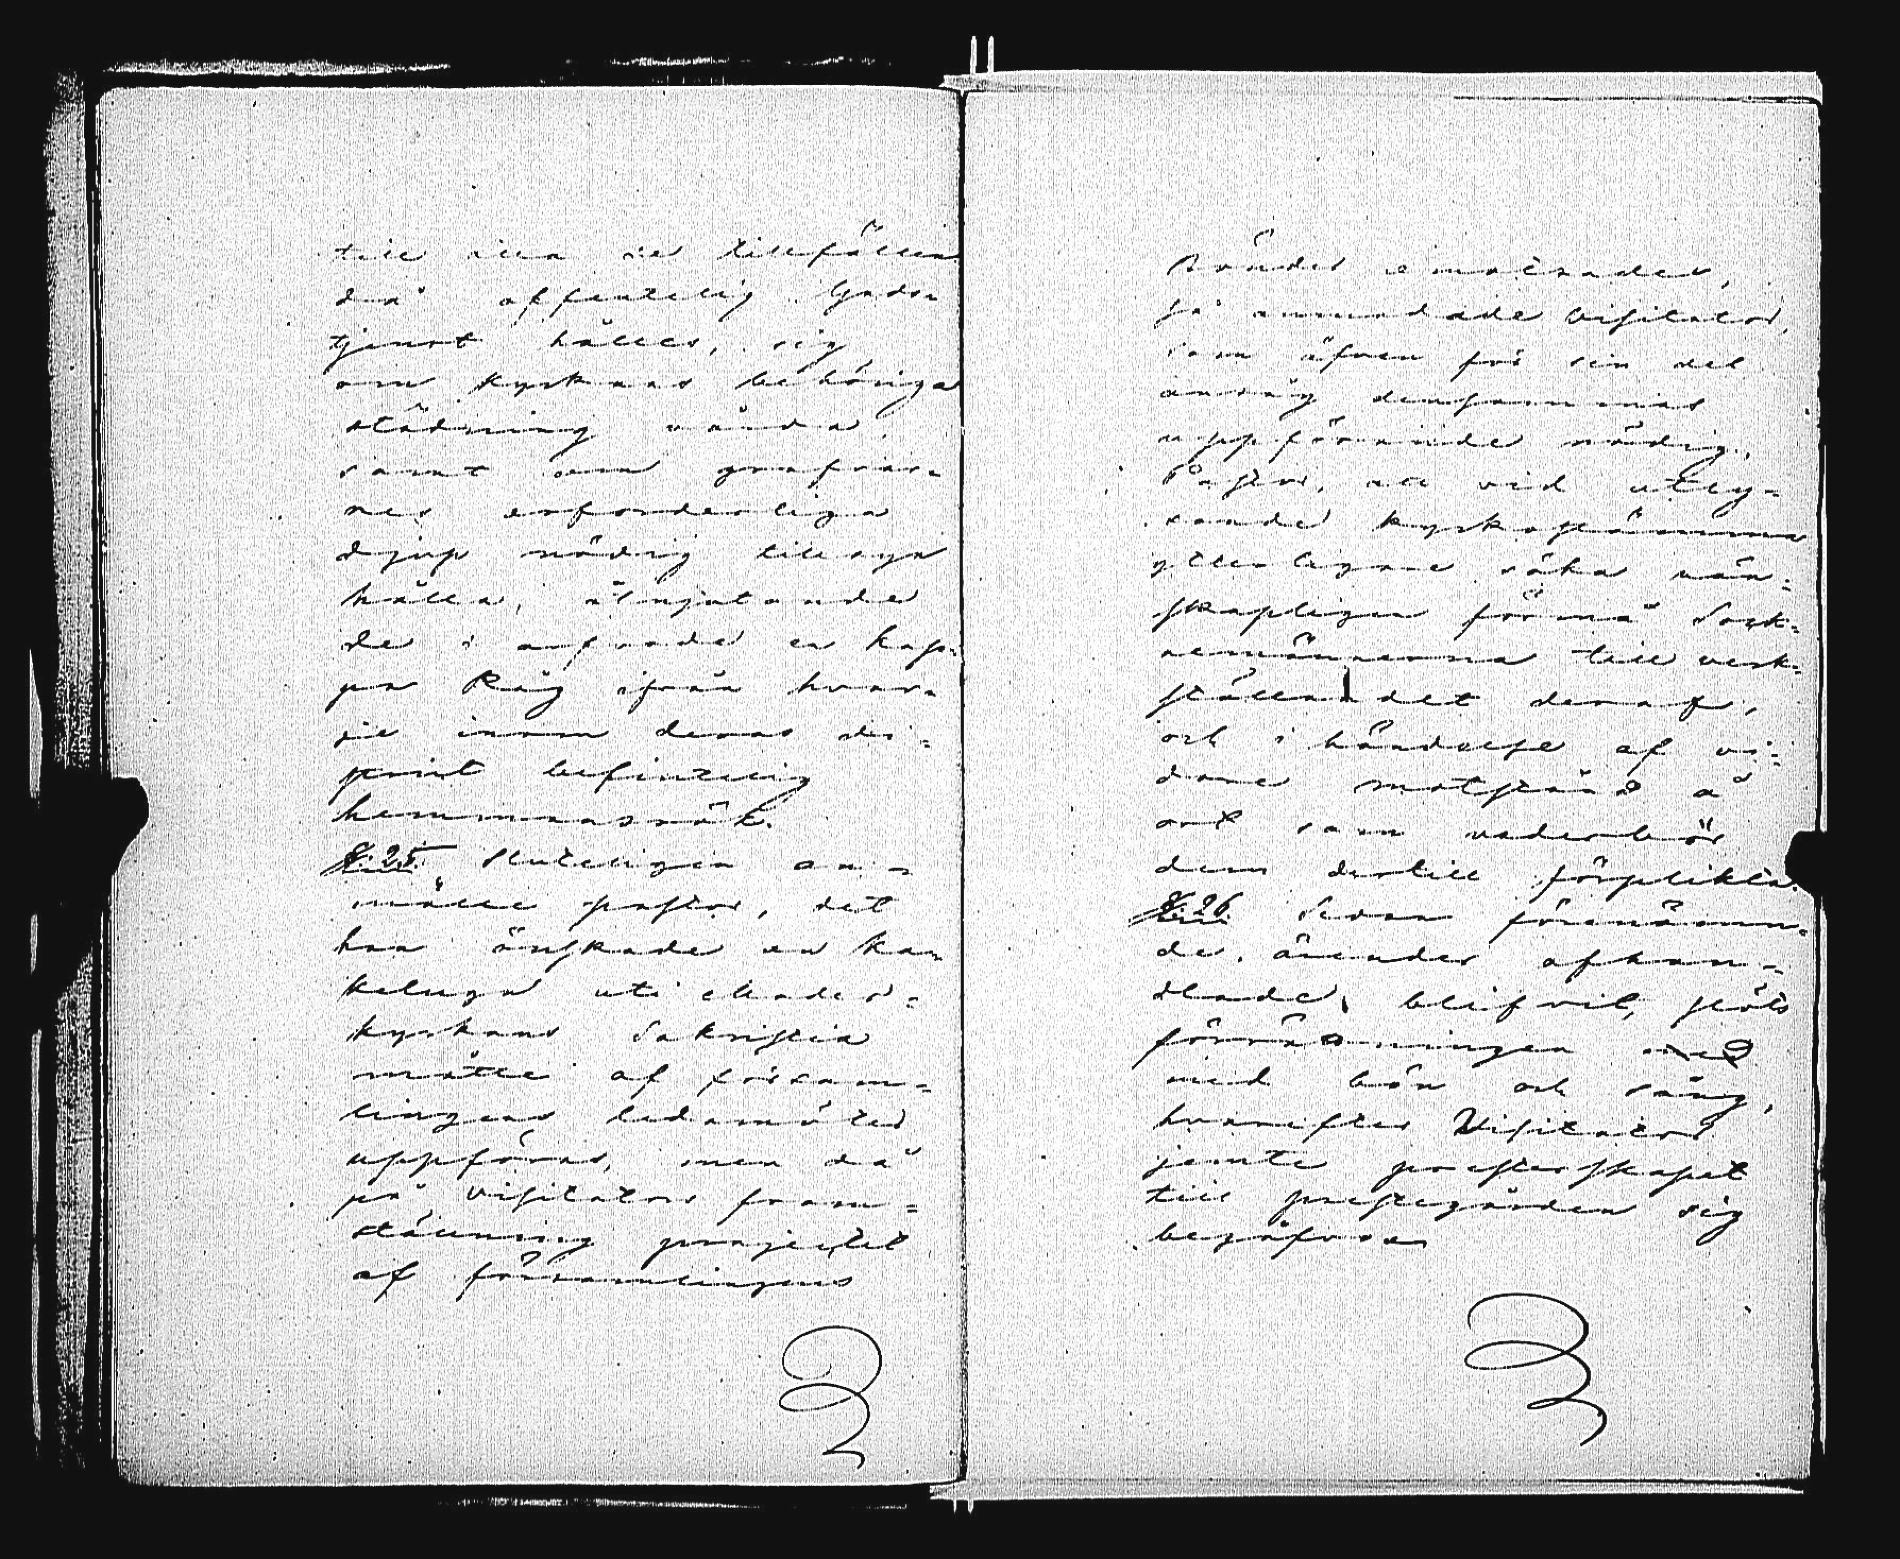 till alla de tillfällen
då offentelig Guds-
tjenst hålles, sig
om kyrkans behöriga
städning vårda,
samt om grafvar-
nes erforderliga
djup nödig tillsyn
hålla, åtnjutande
de i anseende en kap-
pa Råg ifrån hvar-
je inom deras di-
strict befintelig
hemmansrök.
§. 25. Sluteligen an-
mälte pastor, det
han önskade en ka-
kelugn uti
kyrkans Sakristia
måtte af försam-
lingens ledamöter
uppföras, men då
på Visitators fram-
ställning projectet
af församlingens
Bönder emotsades,
så anmodade Visitator,
som äfven för sin del
ansåg densammas
uppförande nödig,
Pastor, att vid
kyrkostämma
ytterligare söka vän-
skapligen förmå Sock-
nemännerna till verk-
ställandet deraf,
och i händelse af vi-
dare motstånd å
ort som vederbör
dem dertill förplikta.
§. 26 Sedan förenämn-
de ärender afhan-
dlade blifvit, slöts
förrättningen med
med bön och sång,
hvarefter Visitator
jemte presterskapet
till prestegården sig
begåfvo